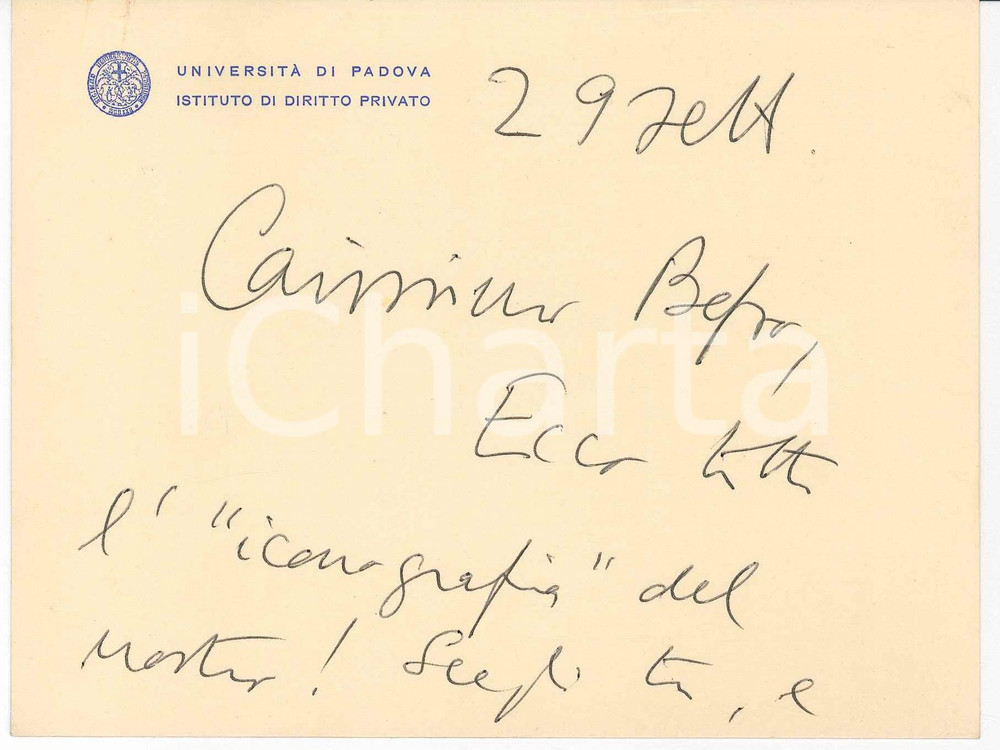 UNIVERSITÀ DI PADOVA
ISTITUTO DI DIRITTO PRIVATO
29 sett.
Carissimo Bepro,
Ecco tutta
l' "iconografia" del
nostro! Scegli tu, e
iCharta